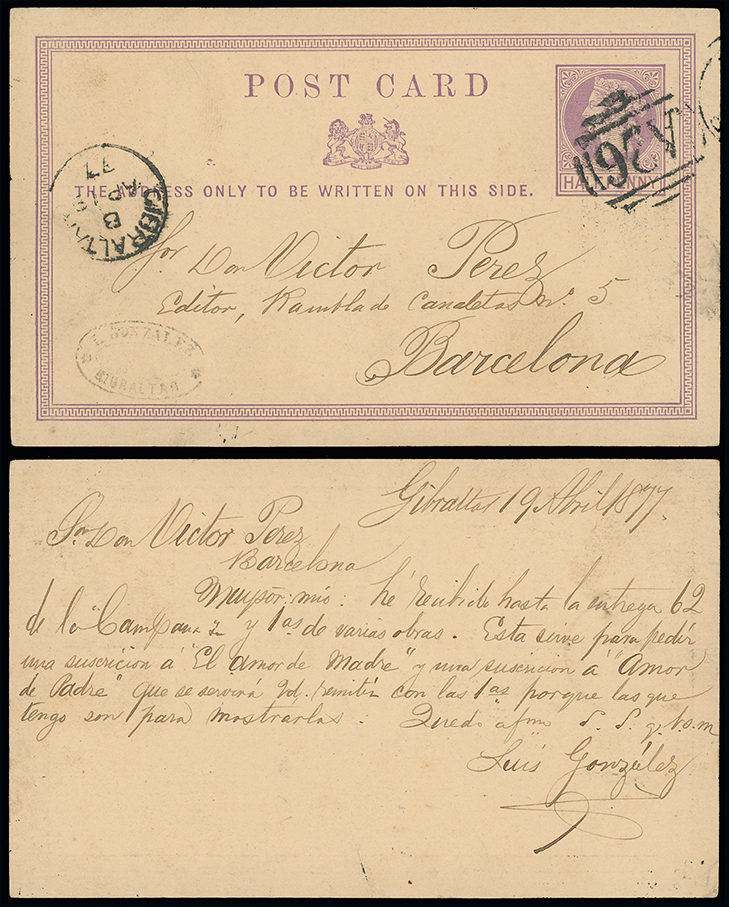 POST CARD
THE ADDRESS ONLY TO BE WRITTEN ON THIS SIDE.
HALFPENNY
A26
GIBRALTAR
B
AP 19
77
Sor. Don Victor Perez
Editor, Rambla de Canaletas No. 5
Barcelona
L. GONZALEZ
GIBRALTAR
Gibraltar 19 Abril 1877.
Sor. Don Victor Perez
Barcelona
Muy sor. mio: hé recibido hasta la entrega 62
de la "Campana" y 1as de varias obras. Esta sirve para pedir
una suscricion á "El amor de Madre" y una suscricion á "Amor
de Padre" que se servirá Vd. remitir con las 1as porque las que
tengo son para mostrarlas. Quedo afmo S. S. q. b. s. m
Luis González